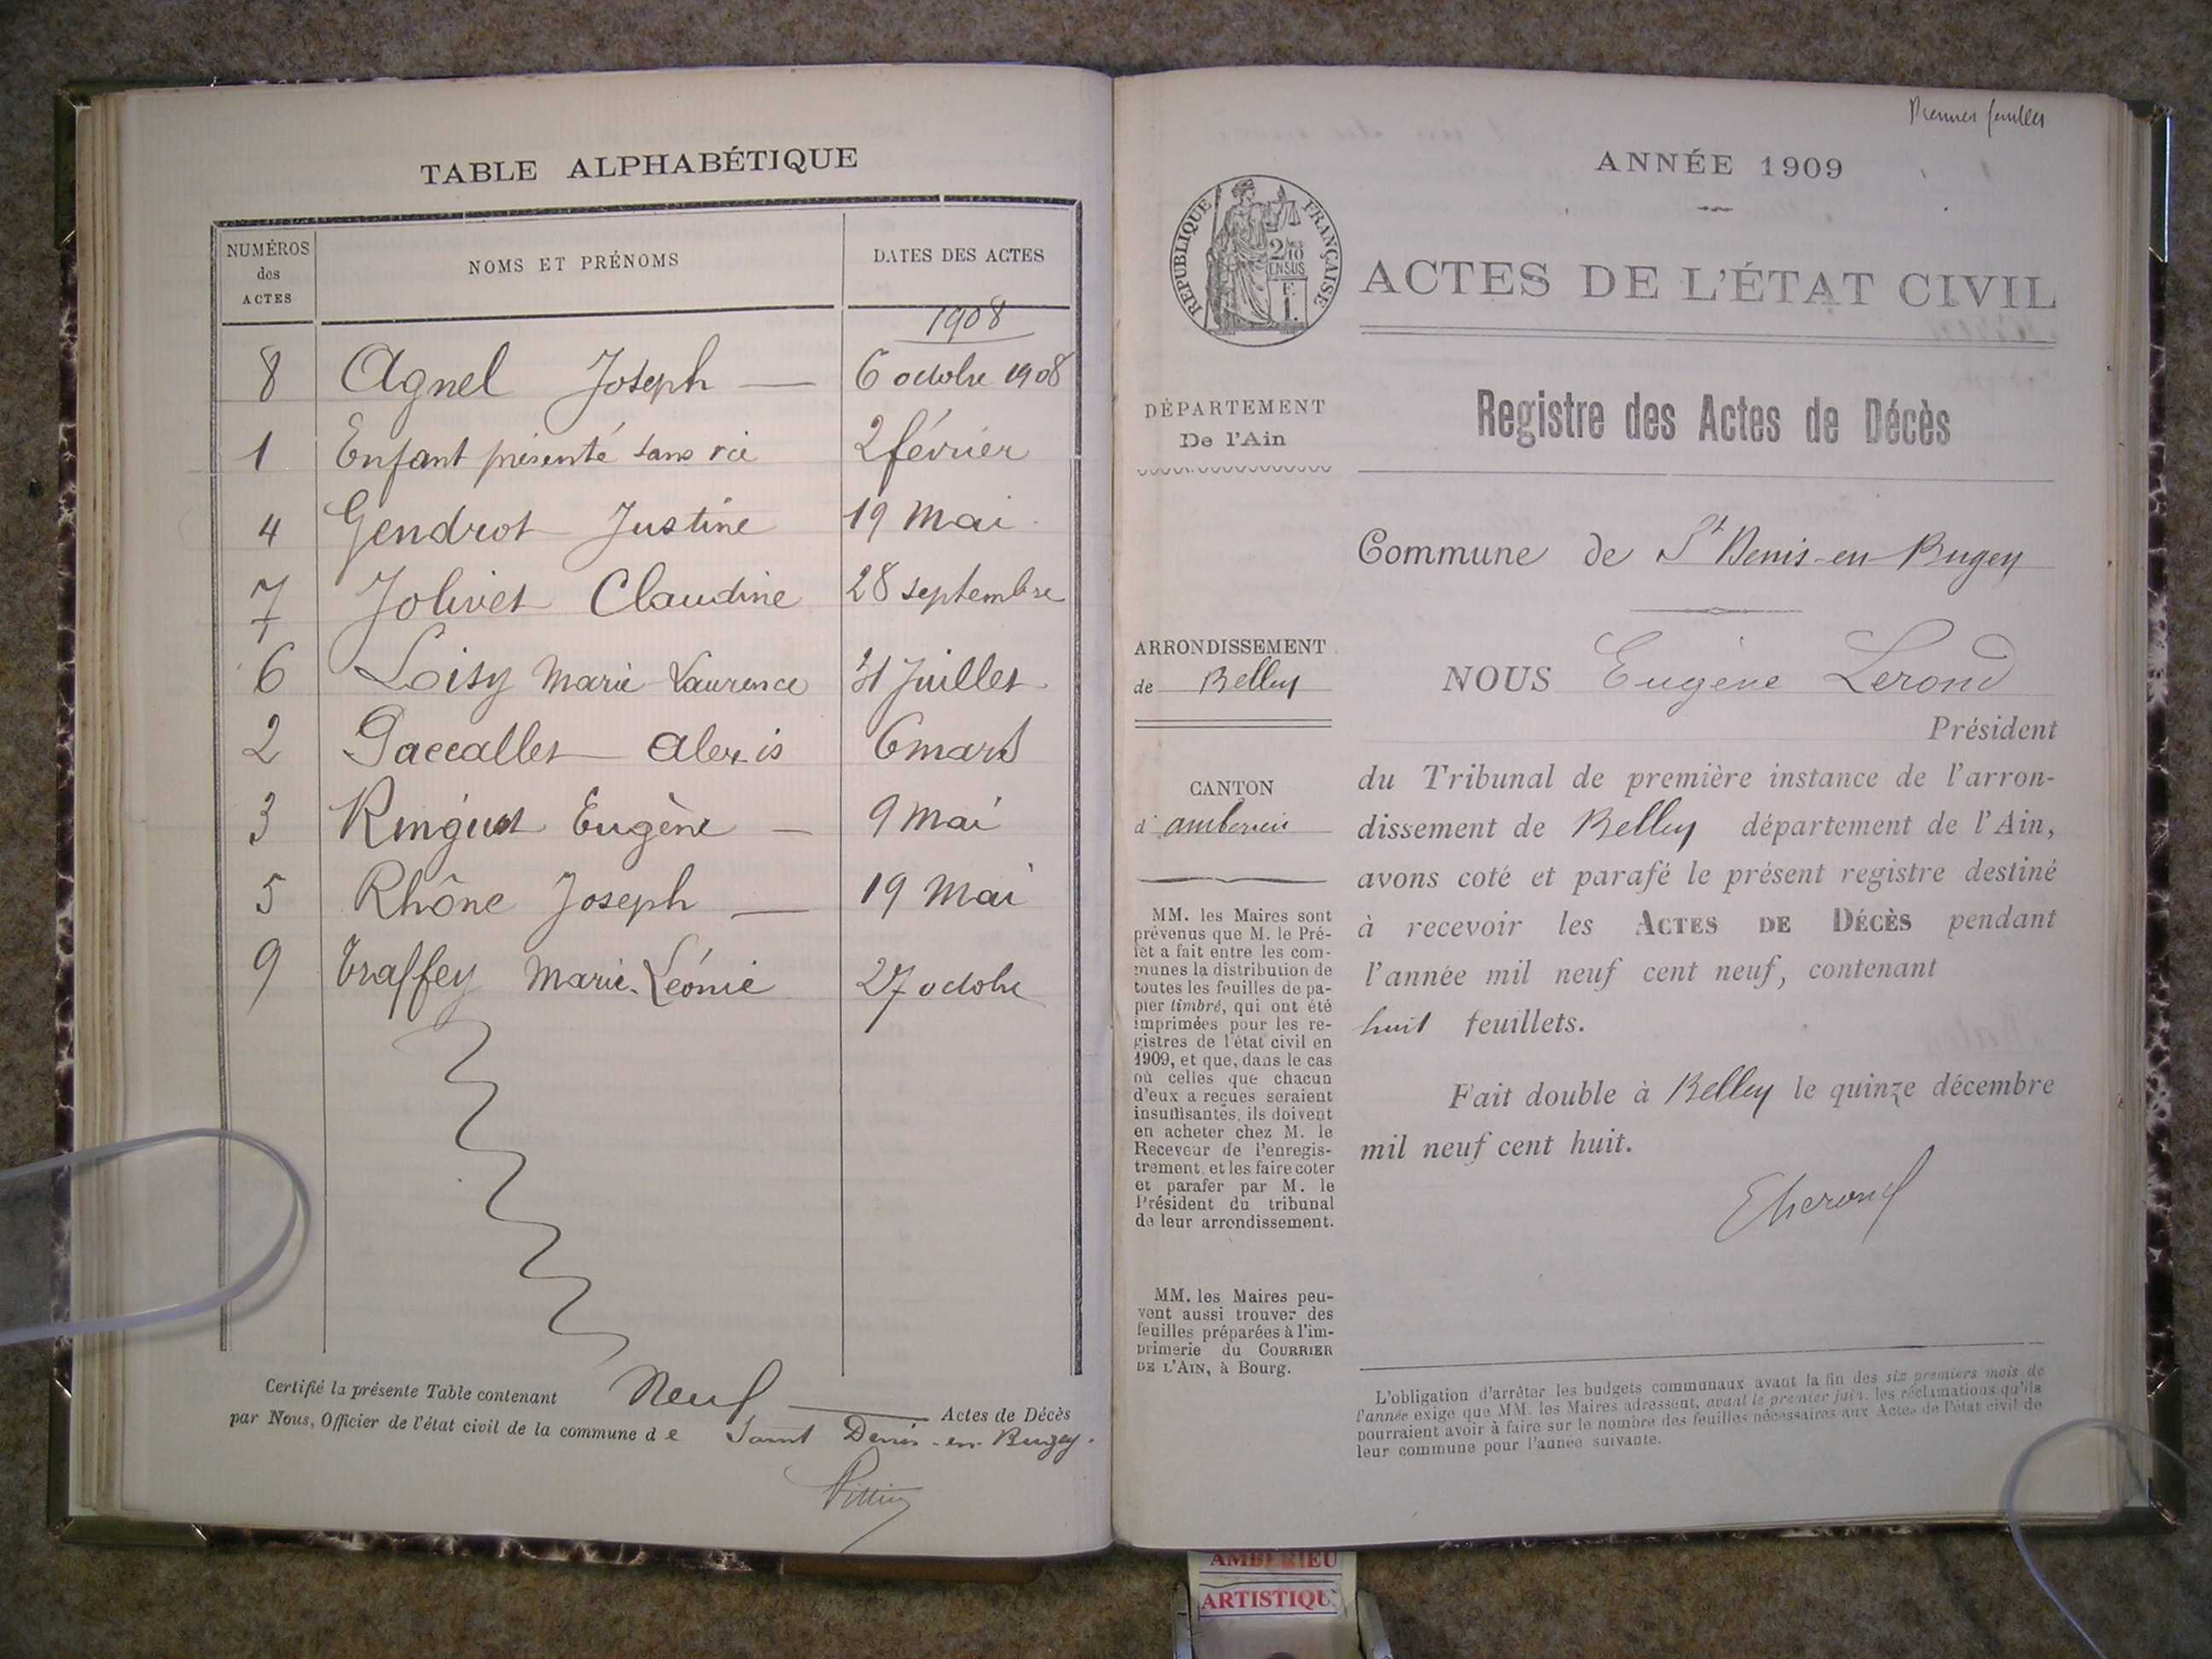 TABLE ALPHABÉTIQUE
NUMÉROS des ACTES
NOMS ET PRÉNOMS
DATES DES ACTES
1908
8 Agnel Joseph — 6 octobre 1908
1 Enfant présenté sans vie 2 février
4 Gendrot Justine 19 Mai
7 Jolivet Claudine 28 septembre
6 Loisy Marie Laurence 31 Juillet
2 Paccallet Alexis 6 mars
3 Ringuet Eugène — 9 Mai
5 Rhône Joseph — 19 Mai
9 Traffey Marie-Léonie 27 octobre
Certifié la présente Table contenant Neuf — Actes de Décès
par Nous, Officier de l'état civil de la commune de Saint Denis-en-Bugey.
Premier feuillet
ANNÉE 1909
RÉPUBLIQUE FRANÇAISE
ACTES DE L'ÉTAT CIVIL
DÉPARTEMENT
De l'Ain
ARRONDISSEMENT
de Belley
CANTON
d'ambérieu
MM. les Maires sont
prévenus que M. le Pré-
fet a fait entre les com-
munes la distribution de
toutes les feuilles de pa-
pier timbré, qui ont été
imprimées pour les re-
gistres de l'état civil en
1909, et que, dans le cas
où celles que chacun
d'eux a reçues seraient
insuffisantes, ils doivent
en acheter chez M. le
Receveur de l'enregis-
trement, et les faire coter
et parafer par M. le
Président du tribunal
de leur arrondissement.
MM. les Maires peu-
vent aussi trouver des
feuilles préparées à l'im-
primerie du COURRIER
DE L'AIN, à Bourg.
Registre des Actes de Décès
Commune de St Denis-en-Bugey
NOUS Eugène Lerond
Président
du Tribunal de première instance de l'arron-
dissement de Belley département de l'Ain,
avons coté et parafé le présent registre destiné
à recevoir les ACTES DE DÉCÈS pendant
l'année mil neuf cent neuf, contenant
huit feuillets.
Fait double à Belley le quinze décembre
mil neuf cent huit.
L'obligation d'arrêter les budgets communaux avant la fin des six premiers mois de
l'année exige que MM. les Maires adressent, avant le premier juin, les réclamations qu'ils
pourraient avoir à faire sur le nombre des feuilles nécessaires aux Actes de l'état civil de
leur commune pour l'année suivante.
AMBERIEU
ARTISTIQU